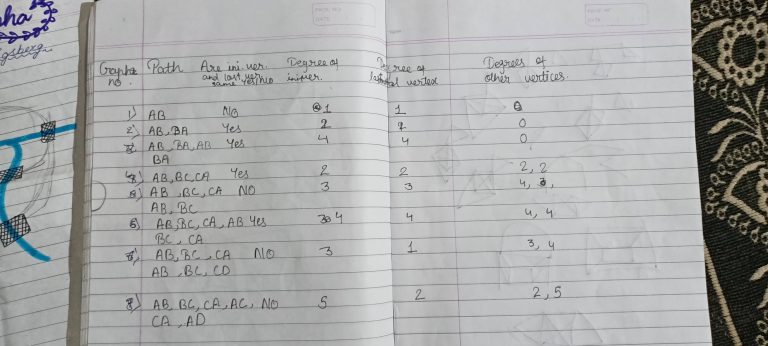 sha
igsberg
PAGE NO
DATE
Graphs Path Are ini. ver. Degree of Degree of Degrees of
no. and last ver. ini ver. vertex other vertices.
same Yes/No
1) AB NO 1 1 0
2) AB, BA Yes 2 2 0
3) AB, BA, AB Yes 4 4 0
BA
4) AB, BC, CA Yes 2 2 2, 2
5) AB, BC, CA NO 3 3 4,
AB, BC
6) AB, BC, CA, AB Yes 4 4 4, 4
BC, CA
7) AB, BC, CA NO 3 1 3, 4
AB, BC, CD
8) AB, BC, CA, AC, NO 5 2 2, 5
CA, AD